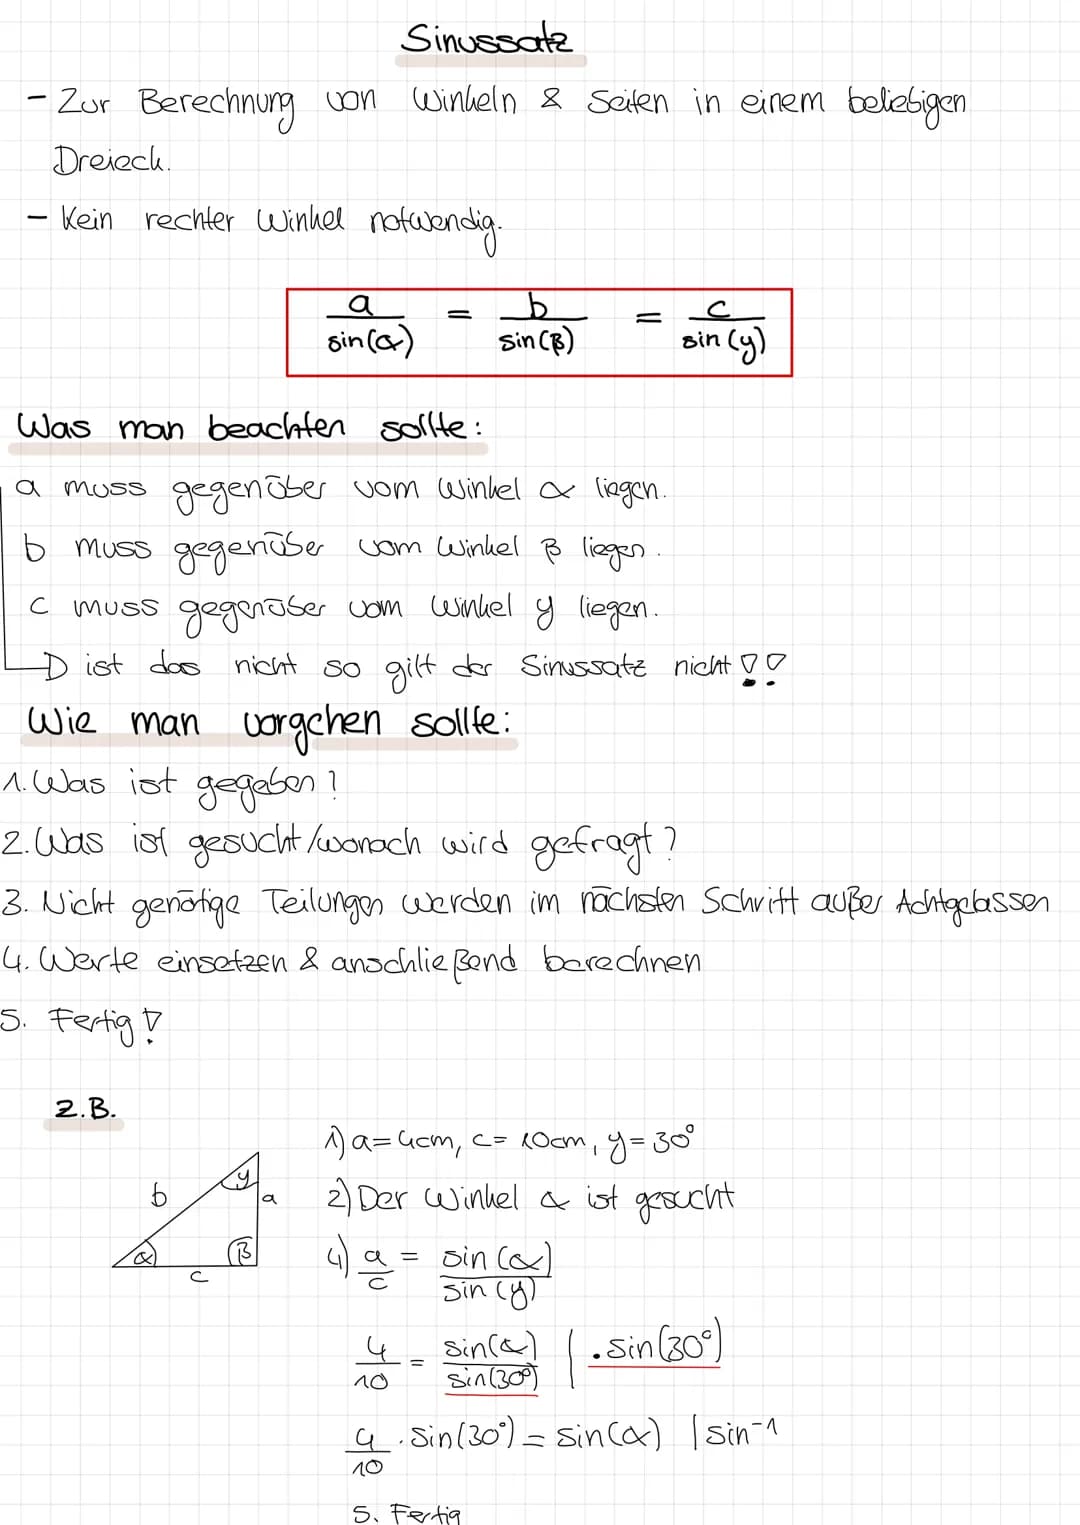 Sinussatz
- Zur Berechnung von Winkeln & Seiten in einem beliebigen
Dreieck.
- Kein rechter Winkel notwendig.
a/sin(α) = b/sin(β) = c/sin(y)
Was man beachten sollte:
a muss gegenüber vom Winkel α liegen.
b muss gegenüber vom Winkel β liegen.
c muss gegenüber vom Winkel y liegen.
→ ist das nicht so gilt der Sinussatz nicht!!
Wie man vorgehen sollte:
1. Was ist gegeben?
2. Was ist gesucht/wonach wird gefragt?
3. Nicht genötige Teilungen werden im nächsten Schritt außer Achtgelassen
4. Werte einsetzen & anschließend berechnen
5. Fertig!
z.B.
1) a=4cm, c=10cm, y=30°
b y a
2) Der Winkel α ist gesucht
α β
c
4) a/c = sin(α)/sin(y)
4/10 = sin(α)/sin(30°) | ·sin(30°)
4/10 · sin(30°) = sin(α) | sin-1
5. Fertig